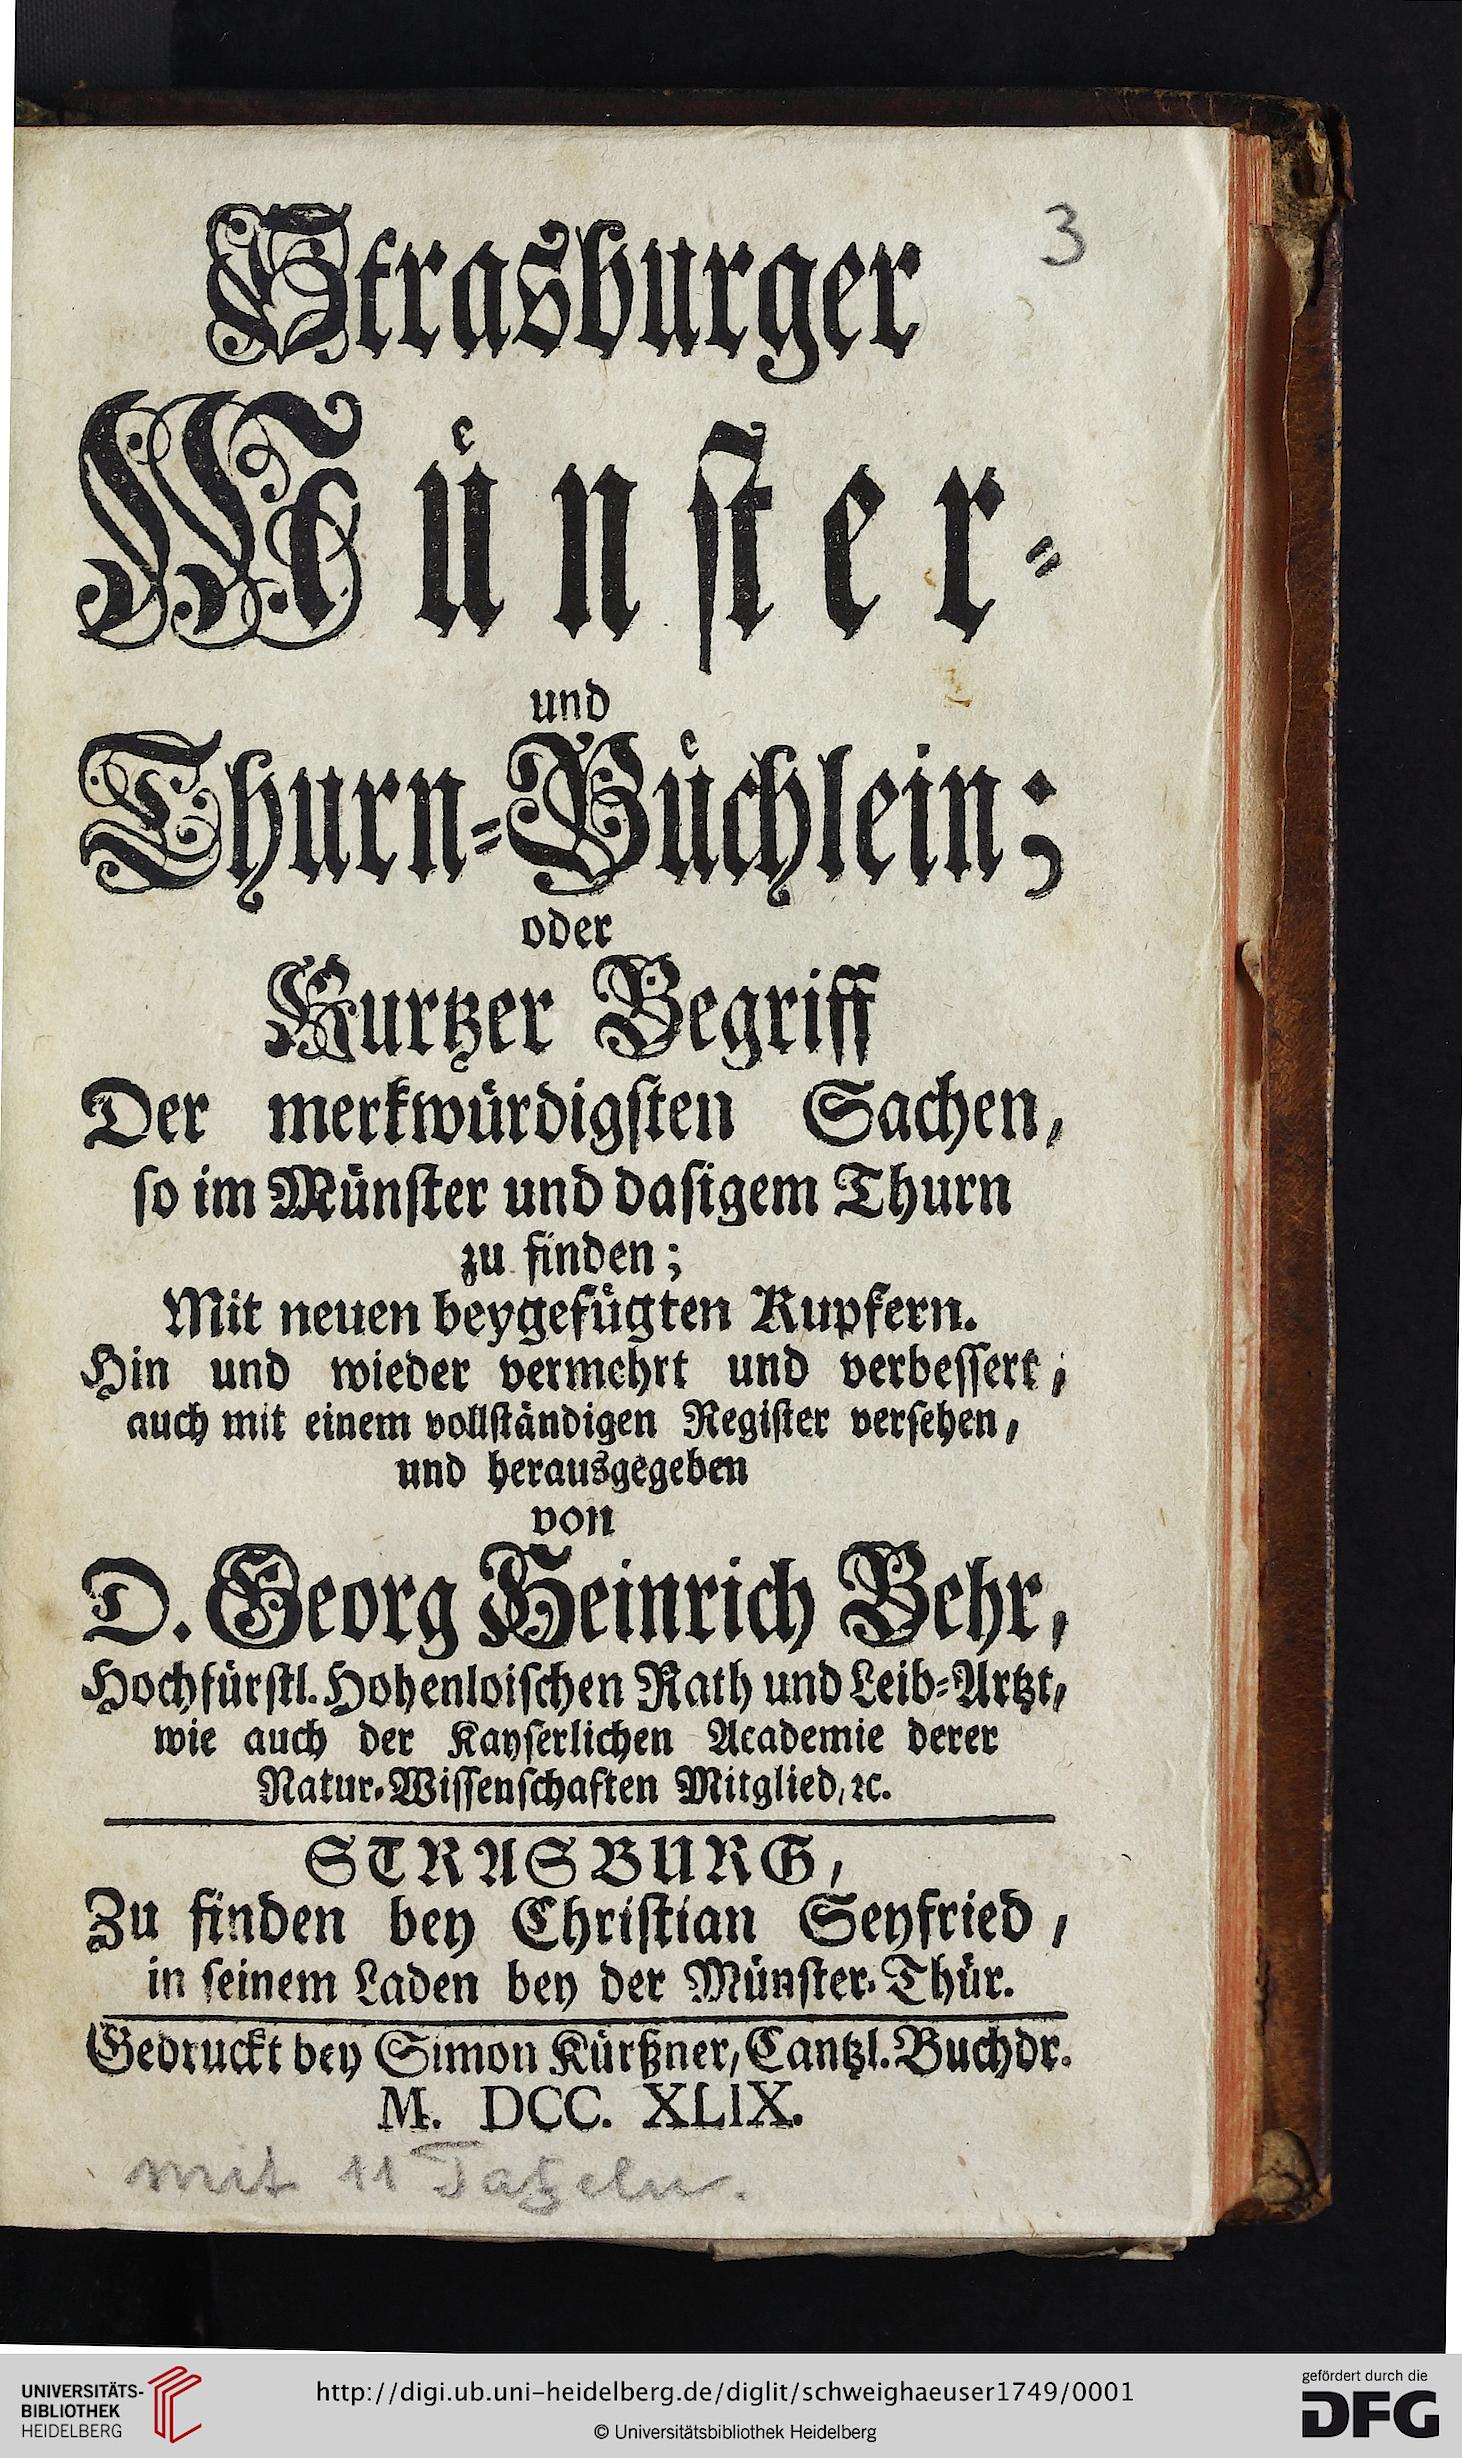 Strasburger
3
Münſter⸗
und
Thurn⸗Büchlein;
oder
Kurtzer Begriff
Der merkwürdigſten Sachen,
ſo im Münſter und daſigem Thurn
zu finden;
Mit neuen beygefügten Kupfern.
Hin und wieder vermehrt und verbeſſert,
auch mit einem vollſtändigen Regiſter verſehen,
und herausgegeben
von
D. Georg Heinrich Behr,
Hochfürſtl. Hohenloiſchen Rath und Leib⸗Artzt,
wie auch der Kayſerlichen Academie derer
Natur⸗Wiſſenſchaften Mitglied, ꝛc.
STRASBURG,
Zu finden bey Chriſtian Seyfried,
in ſeinem Laden bey der Münſter⸗Thür.
Gedruckt bey Simon Kürßner, Cantzl. Buchdr.
M. DCC. XLIX.
mit 11 Tafeln.
UNIVERSITÄTS-
BIBLIOTHEK
HEIDELBERG
http://digi.ub.uni-heidelberg.de/diglit/schweighaeuser1749/0001
© Universitätsbibliothek Heidelberg
gefördert durch die
DFG